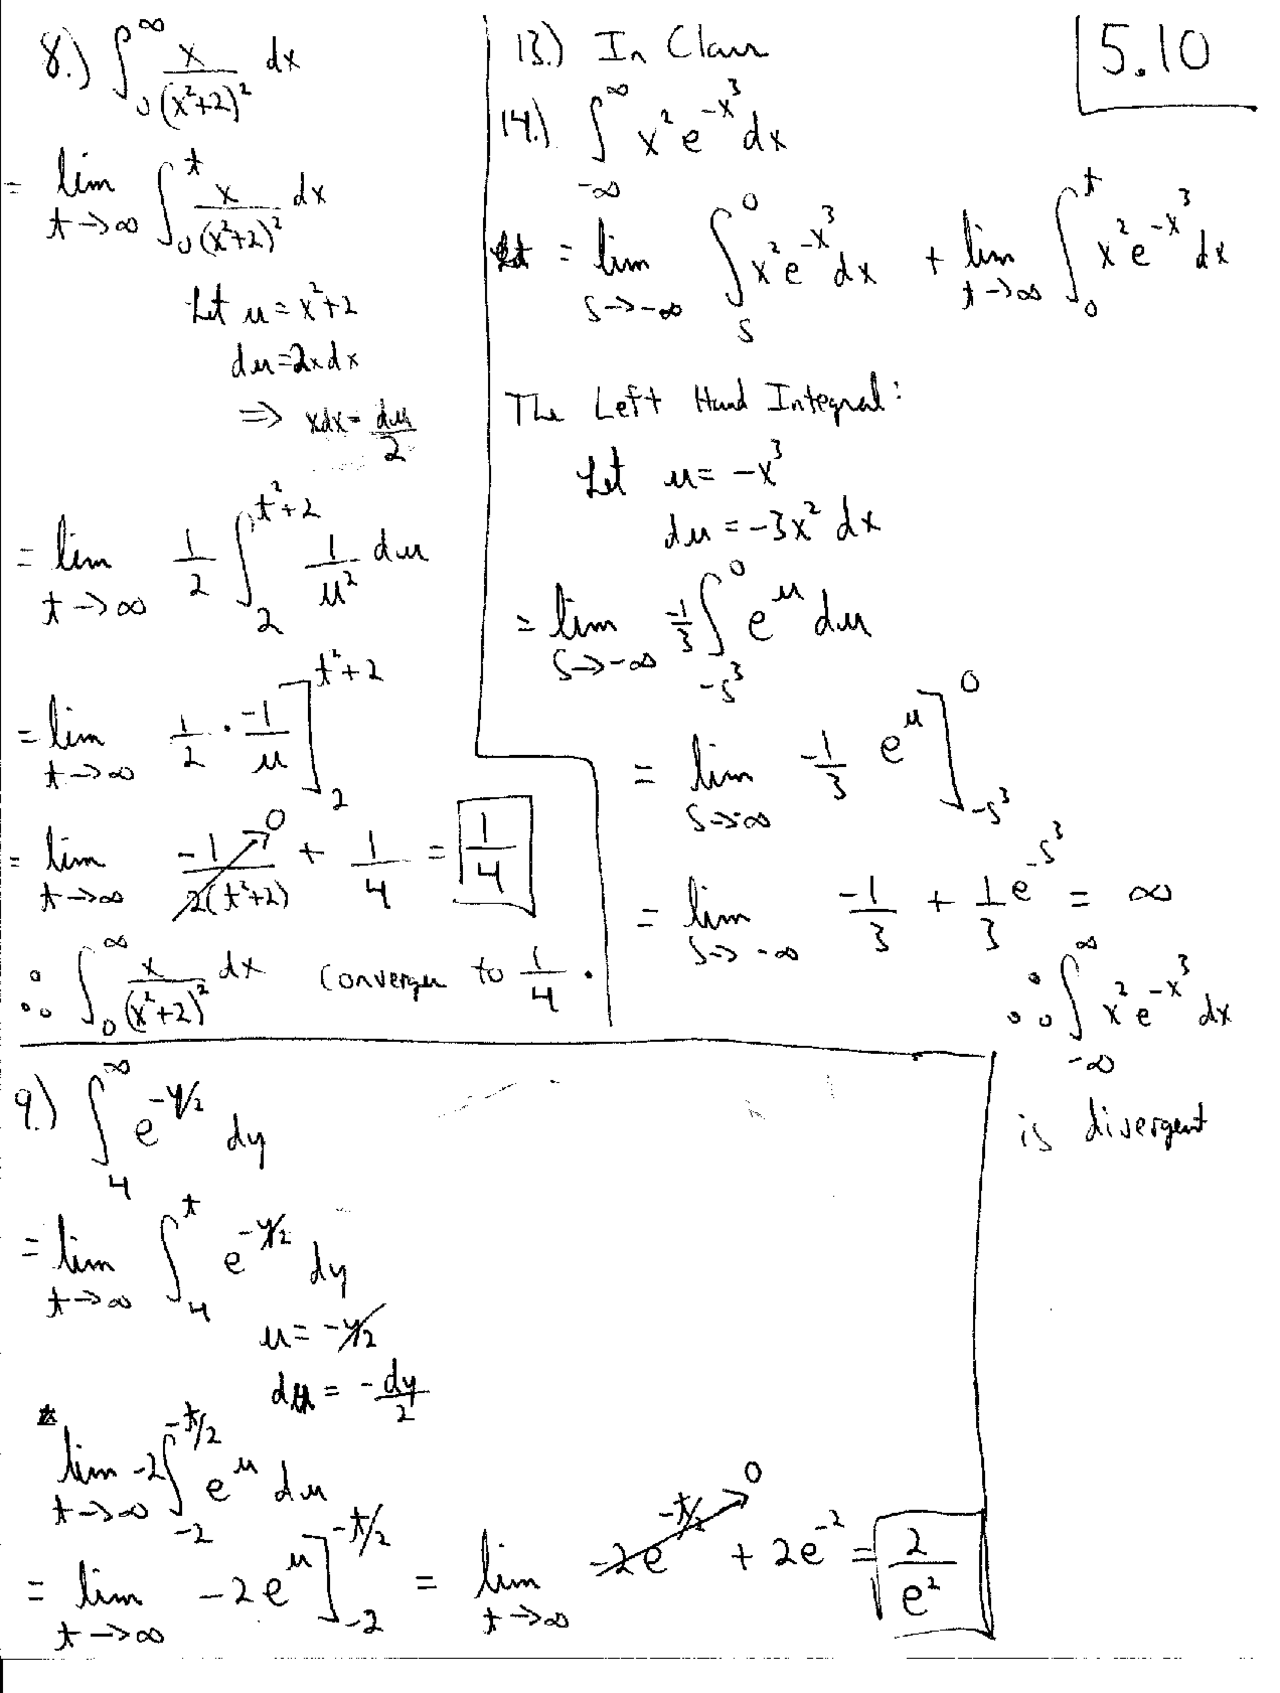 8.) ∫₀^∞ x/(x²+2)² dx
= lim t→∞ ∫₀^t x/(x²+2)² dx
Let u = x²+2
du = 2xdx
⇒ xdx = du/2
= lim t→∞ 1/2 ∫₂^(t²+2) 1/u² du
= lim t→∞ 1/2 · -1/u ]₂^(t²+2)
= lim t→∞ -1/2(t²+2) → 0 + 1/4 = 1/4
∴ ∫₀^∞ x/(x²+2)² dx converges to 1/4.
5.10
13.) In Class
14.) ∫_-∞^∞ x² e^(-x³) dx
= lim s→-∞ ∫_s^0 x² e^(-x³) dx + lim t→∞ ∫₀^t x² e^(-x³) dx
The Left Hand Integral:
Let u = -x³
du = -3x² dx
= lim s→-∞ -1/3 ∫_(-s³)^0 e^u du
= lim s→-∞ -1/3 e^u ]_(-s³)^0
= lim s→-∞ -1/3 + 1/3 e^(-s³) = ∞
∴ ∫_-∞^∞ x² e^(-x³) dx
is divergent
9.) ∫₄^∞ e^(-y/2) dy
= lim t→∞ ∫₄^t e^(-y/2) dy
u = -y/2
du = -dy/2
lim t→∞ -2 ∫_-2^(-t/2) e^u du
= lim t→∞ -2e^u ]_-2^(-t/2) = lim t→∞ -2e^(-t/2) → 0 + 2e^(-2) = 2/e²